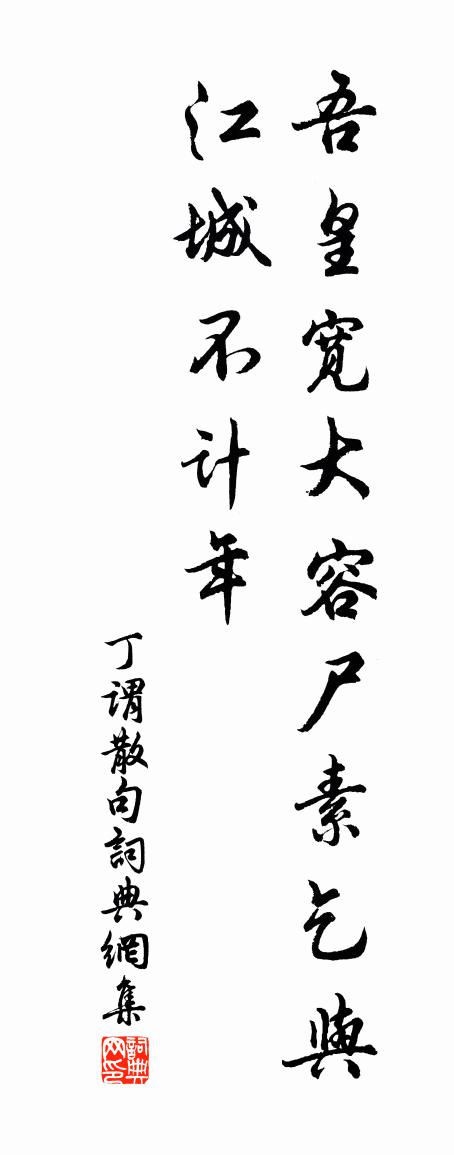 吾皇寬大容尸素乞與
江城不計年
丁謂散句詞典網集
詞典网印